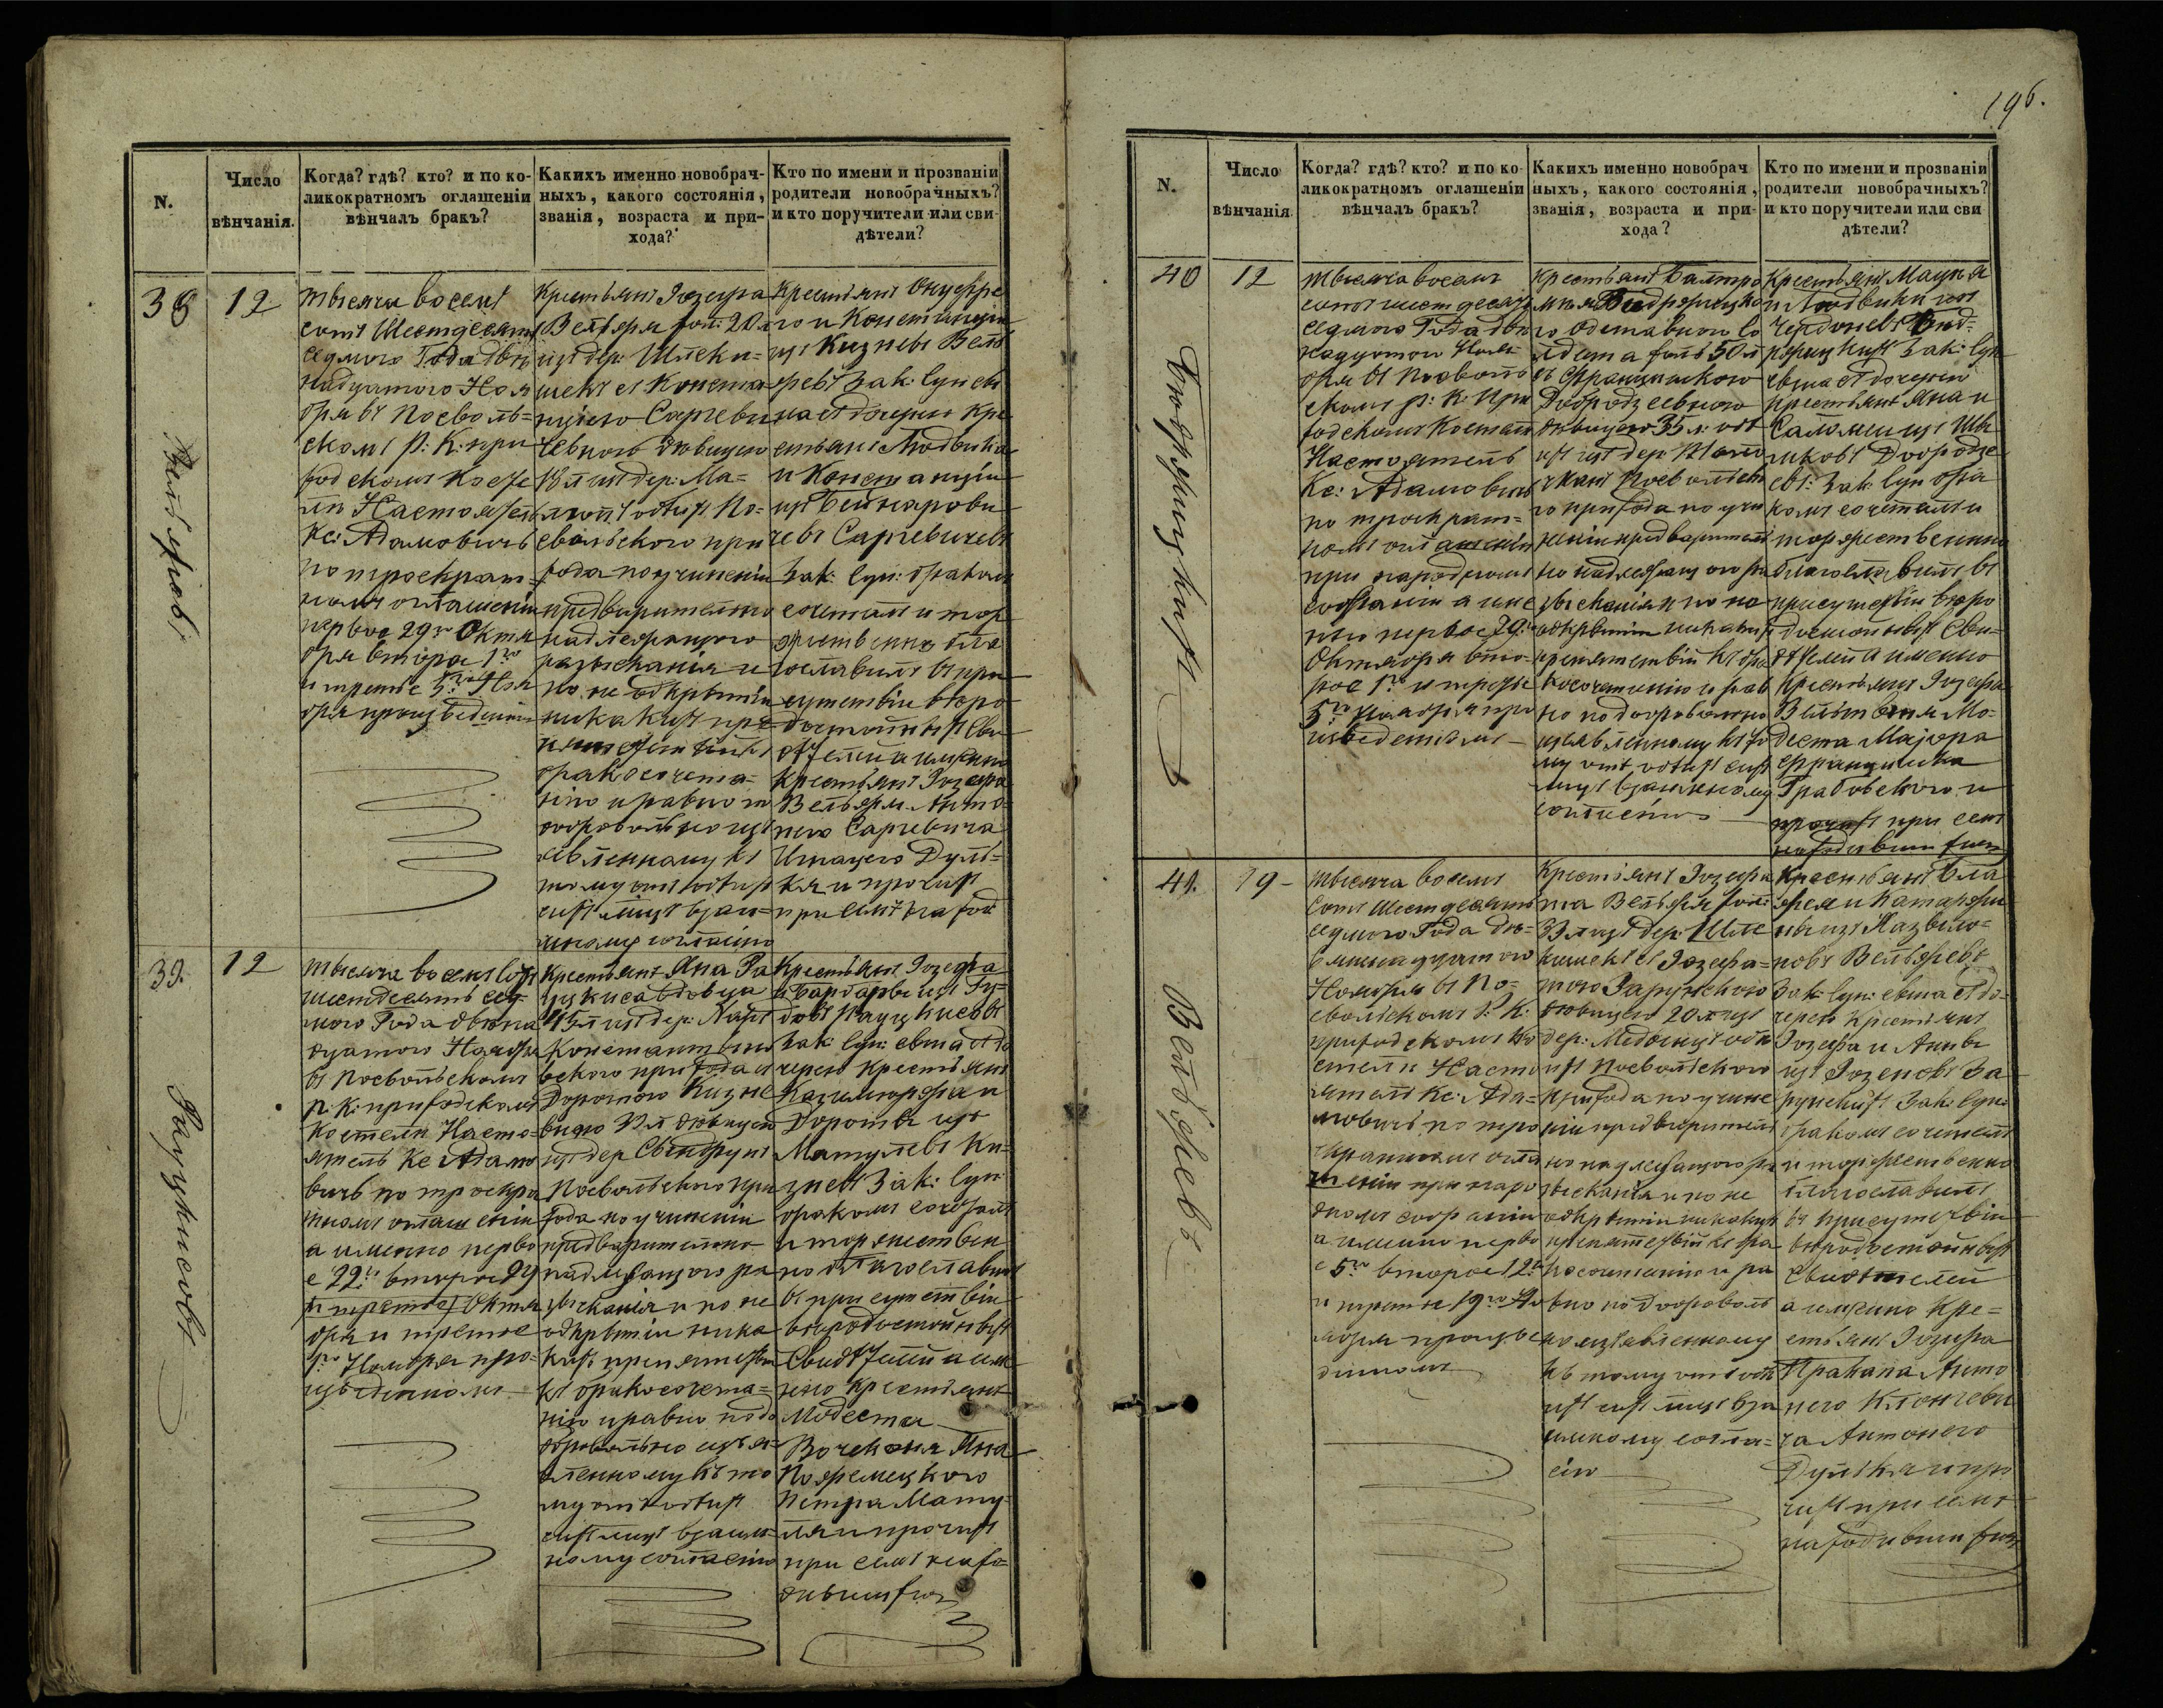 196.
N.
Число
вѣнчанія.
Когда? гдѣ? кто? и по ко-
ликократномъ оглашеніи
вѣнчалъ бракъ?
Какихъ именно новобрач-
ныхъ, какого состоянія,
званія, возраста и при-
хода?
Кто по имени и прозваніи
родители новобрачныхъ?
и кто поручители или сви-
дѣтели?
38
12
тысяча восемь
сотъ Шестдесятъ
седмого Года двѣ
надцатого Ноя
бря въ Поеволь=
скомъ Р: К: при
ходскомъ Косте
лѣ Настоятель
Кс: Адамовичь
по троекрат=
номъ оглашеніи
первое 29го Октя
бря второе 1го
и третье 5го Ноя
бря произведеніи
Крестьянъ Іозефа
Вельжя юн: 20 л
изъ дер: Шлеки=
шекъ съ Констан
нцiею Саргеви
чевною дѣвицею
л изъ дер: Ма=
обтихъ По=
евольского при
хода по учиненіи
предварительно
надлежащого
разысканія и
по не открытіи
никакихъ пре
пятствій къ
бракосочета=
нію и равно по
добровольно изъ
явленному къ
тому отъ обтихъ
сихъ лицъ взаи=
мному согласію
Крестьянъ Онуфре
го и Констанціи
изъ Кизневъ Вель
жевъ зак: супск
на съ дочерью Кре
стьянъ Людвика
и Констанціи
изъ Бейнарови
чевъ Саргевичевъ
Зак: суп: бракомъ
сочеталъ и тор
жественно бла
гославилъ въ при
сутствіи вѣро
достойныхъ Сви
дѣтелей а именно
Крестьянъ Іозефа
Вельжя Анто
него Саргевича
Игнацего Дуль=
кя и прочихъ
при семъ наход
39.
12
тысяча восемь сотъ
шестдесятъ сед=
мого Года двѣна
дцатого Ноября
въ Поевольскомъ
Р: К: приходскомъ
Костелѣ Насто=
ятель Кс Адамо
вичь по троекра
тномъ оглашеніи
а именно перво
е 22го второе 29
и третье Октя
бря и третье
1го Ноября про=
изведеніомъ
Крестьянъ Яна Ра
уцкиса вдовца
45 л изъ дер:
Константинов
ского прихода съ
Доротою Кизне
вною л дѣвицею
изъ дер
Поевольского при
хода по учиненіи
предварительно
надлежащого ра
зысканія и по не
открытіи ника
кихъ препятствій
къ бракосочета=
нію и равно по до
бровольно изъя=
вленному къ то
му отъ обтихъ
сихъ лицъ взаим=
ному согласію
Крестьянъ Іозефа
и Барбары изъ Гу=
довъ Рауцкисовъ
Зак: суп: сына съ до
черью Крестьянъ
Казиміержа и
Дороты изъ
Матулевъ Ки=
зневъ Зак: суп:
бракомъ сочеталъ
и торжествен
но благославилъ
въ присутствіи
вѣродостойныхъ
Свидѣтелей а им
енно Крестьянъ
Модеста
Яна
Пожемецкого
Петра Мату=
ля и прочихъ
при семъ нахо=
дившихся
N.
Число
вѣнчанія
Когда? гдѣ? кто? и по ко-
ликократномъ оглашеніи
вѣнчалъ бракъ?
Какихъ именно новобрач
ныхъ, какого состоянія,
званія, возраста и при-
хода?
Кто по имени и прозваніи
родители новобрачныхъ?
и кто поручители или сви
дѣтели?
40
12
тысяча восемь
сотъ шестдесятъ
седмого Года двѣ
надцатого Нояб=
бря въ Поеволь
скомъ Р: К: При
ходскомъ Костелѣ
Настоятель
Кс: Адамовичь
по троекрат=
номъ оглашеніи
при народномъ
собраніи а име
нно первое 29го
Октября вто=
рое 1го и третье
5го Ноября про
изведеніомъ
Крестьянъ Балтро
мѣя
го отставного со
лдата юнъ 50 л
съ Францишкою
Добродзеевною
дѣвицею 35 л: обт
ихъ изъ дер
Поевольско
го прихода по учи
неніи предварителі
но надлежащого ра
зысканія и по не
открытіи никакихъ
препятствій къ бра
косочетанію и рав
но по добровольно
изъявленному къ то
му отъ обтихъ сихъ
лицъ взаимному
согласію
Крестьянъ Мацѣя
и Людвики изъ
Чердоневъ Бюд=
режицкихъ Зак: суп
сына съ дочерью
крестьянъ Яна и
Саломеи изъ
Добродзе
евъ: Зак: суп бра
комъ сочеталъ и
торжественно
благославилъ въ
присутствіи вѣро
достойныхъ Сви=
дѣтелей а именно
Крестьянъ Іозефа
Мо=
деста Маіора
Францишка
Грабовского и
прочихъ при семъ
находившихся
41.
19
тысяча восемь
сотъ Шестдесятъ
седмого Года де=
вятнадцатого
Ноября въ По=
евольскомъ Р: К:
приходскомъ Ко
стелѣ Насто
ятель Кс: Ада=
мовичь по тро
екратномъ огла
шеніи при наро
дномъ собраніи
а именно перво
е 5го второе 12го
и третье 19го Но
ября произве
деніомъ
Крестьянъ Іозефа
та Вельжя юнъ
33 л изъ дер Шле
кишекъ съ Іозефа=
тою Зарунскою
дѣвицею 20 л изъ
дер: обт
ихъ Поевольского
прихода по учине
ніи предварителі
но надлежащого ра
зысканія и по не
открытіи никакихъ
препятствій къ бра
косочетанію и ра
вно по доброволь
но изъявленному
къ тому отъ обт
ихъ сихъ лицъ вза
имному согла=
сію
Крестьянъ Бла
жея и Катаржи
ны изъ
Вельжевъ
Зак: суп: сына съ до=
черею Крестьянъ
Іозефа и Анны
изъ Іозеновъ За
рунскихъ Зак: суп:
бракомъ сочеталъ
и торжественно
благославилъ
въ присутствіи
вѣродостойныхъ
Свидѣтелей
а именно Кре=
стьянъ Іозефа
Пракапа Анто
него
ча Антонего
Дулькя и про
чихъ при семъ
находившихся
Вельжевъ
Рауцкисовъ
Бюдрежицкихъ
Вельжевъ